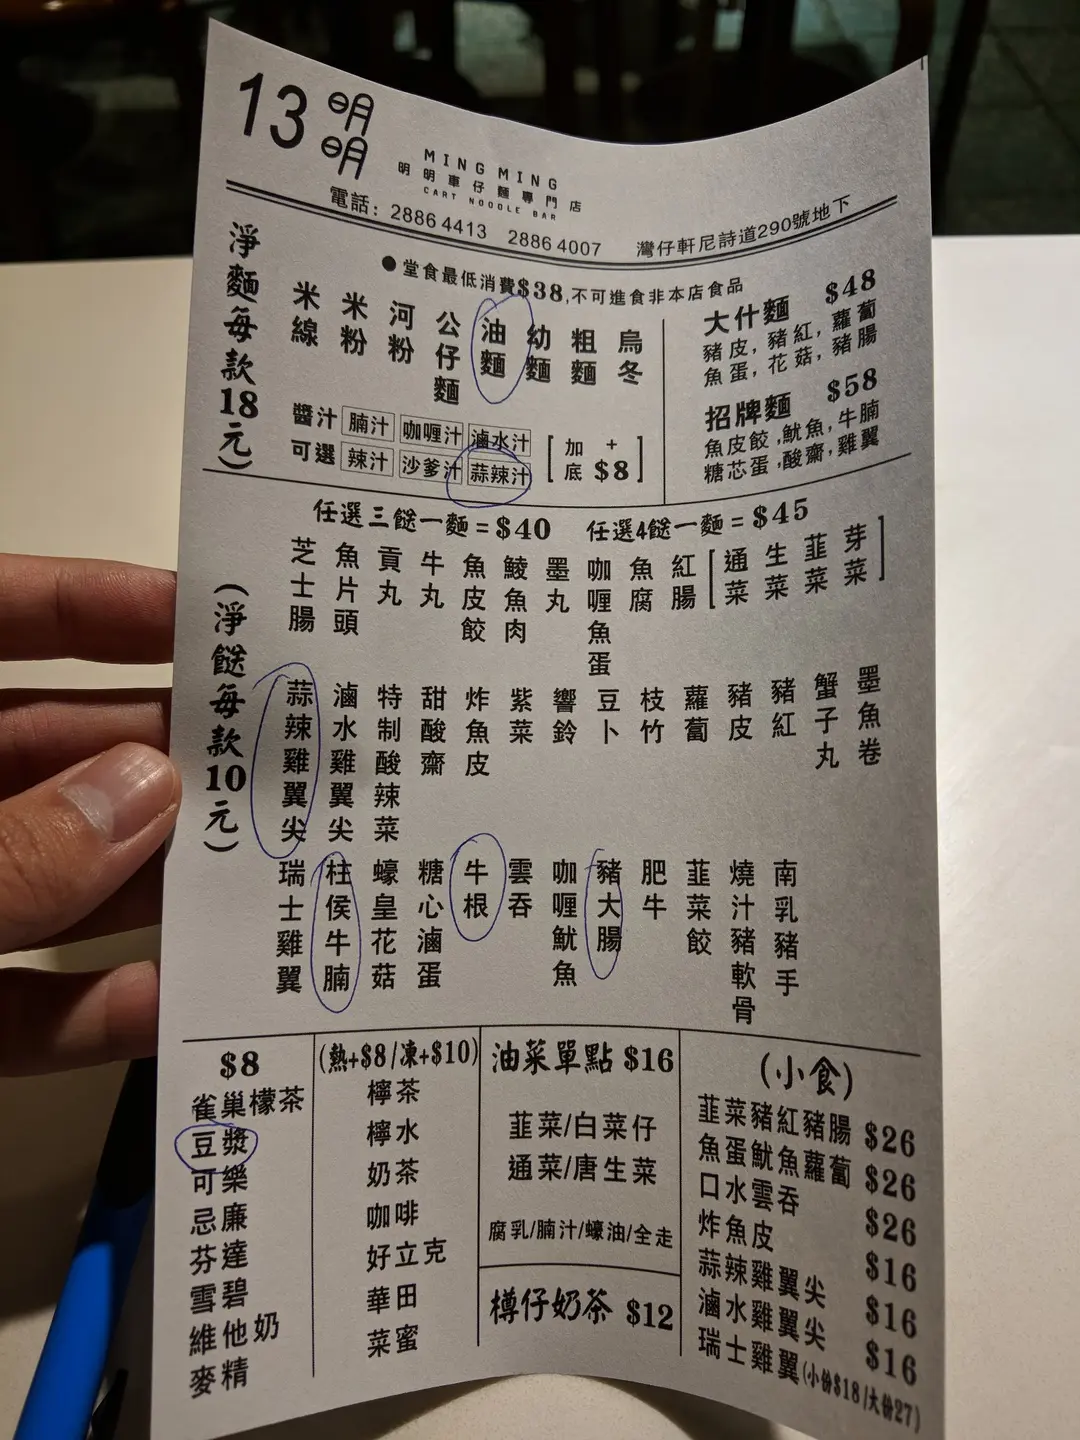 13 明明
MING MING
明明車仔麵專門店
CART NOODLE BAR
電話: 2886 4413 2886 4007 灣仔軒尼詩道290號地下
●堂食最低消費$38,不可進食非本店食品
淨麵每款18元)
米線
米粉
河粉
公仔麵
油麵
幼麵
粗麵
烏冬
醬汁可選
腩汁 咖喱汁 滷水汁
辣汁 沙爹汁 蒜辣汁
[加底 +$8]
大什麵 $48
豬皮,豬紅,蘿蔔
魚蛋,花菇,豬腸
招牌麵 $58
魚皮餃,魷魚,牛腩
糖芯蛋,酸齋,雞翼
任選三餸一麵=$40 任選4餸一麵=$45
(淨餸每款10元)
芝士腸
魚片頭
貢丸
牛丸
魚皮餃
鯪魚肉
墨丸
咖喱魚蛋
魚腐
紅腸
[通菜
生菜
韮菜
芽菜]
蒜辣雞翼尖
滷水雞翼尖
特制酸辣菜
甜酸齋
炸魚皮
紫菜
響鈴
豆卜
枝竹
蘿蔔
豬皮
豬紅
蟹子丸
墨魚卷
瑞士雞翼
柱侯牛腩
蠔皇花菇
糖心滷蛋
牛根
雲吞
咖喱魷魚
豬大腸
肥牛
韮菜餃
燒汁豬軟骨
南乳豬手
$8
雀巢檬茶
豆漿
可樂
忌廉
芬達
雪碧
維他奶
麥精
(熱+$8/凍+$10)
檸茶
檸水
奶茶
咖啡
好立克
華田
菜蜜
油菜單點 $16
韮菜/白菜仔
通菜/唐生菜
腐乳/腩汁/蠔油/全走
樽仔奶茶 $12
(小食)
韮菜豬紅豬腸 $26
魚蛋魷魚蘿蔔 $26
口水雲吞 $26
炸魚皮 $16
蒜辣雞翼尖 $16
滷水雞翼尖 $16
瑞士雞翼(小份$18/大份27)